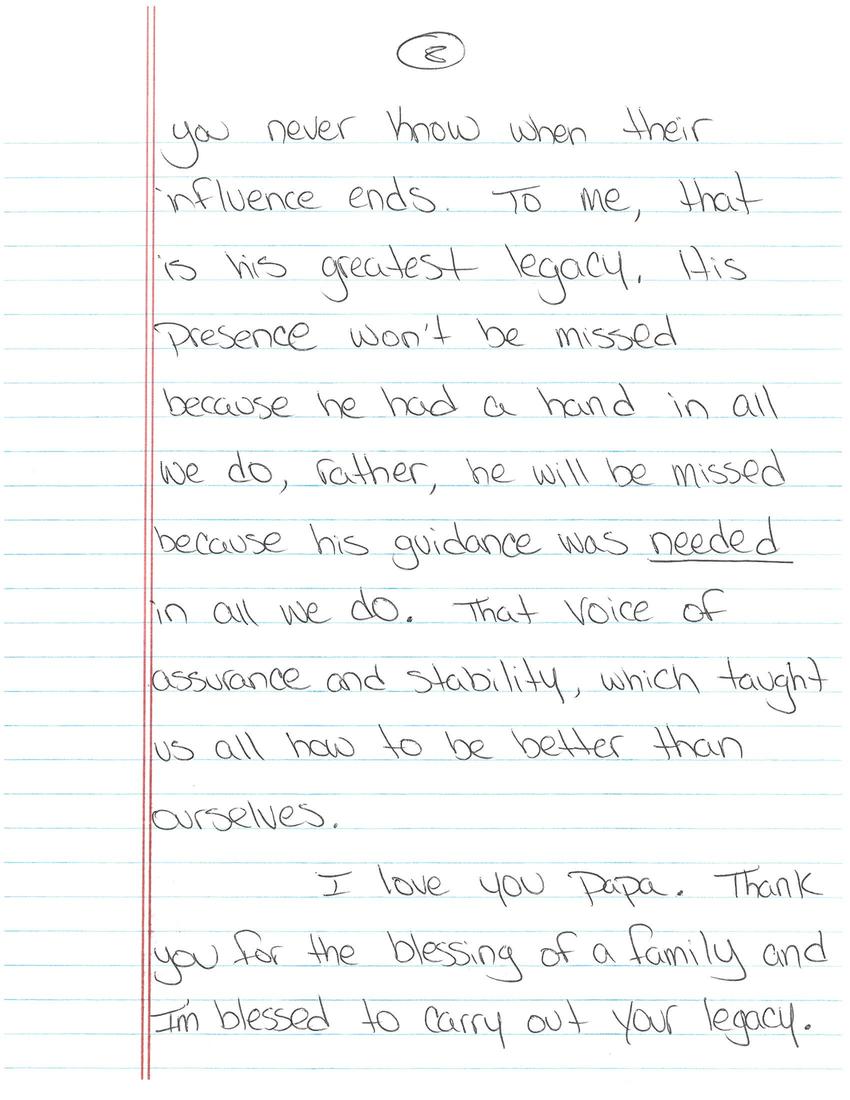 8
you never know when their
influence ends. To me, that
is his greatest legacy. His
presence won't be missed
because he had a hand in all
we do, rather, he will be missed
because his guidance was needed
in all we do. That voice of
assurance and stability, which taught
us all how to be better than
ourselves.
I love you Papa. Thank
you for the blessing of a family and
I'm blessed to carry out your legacy.